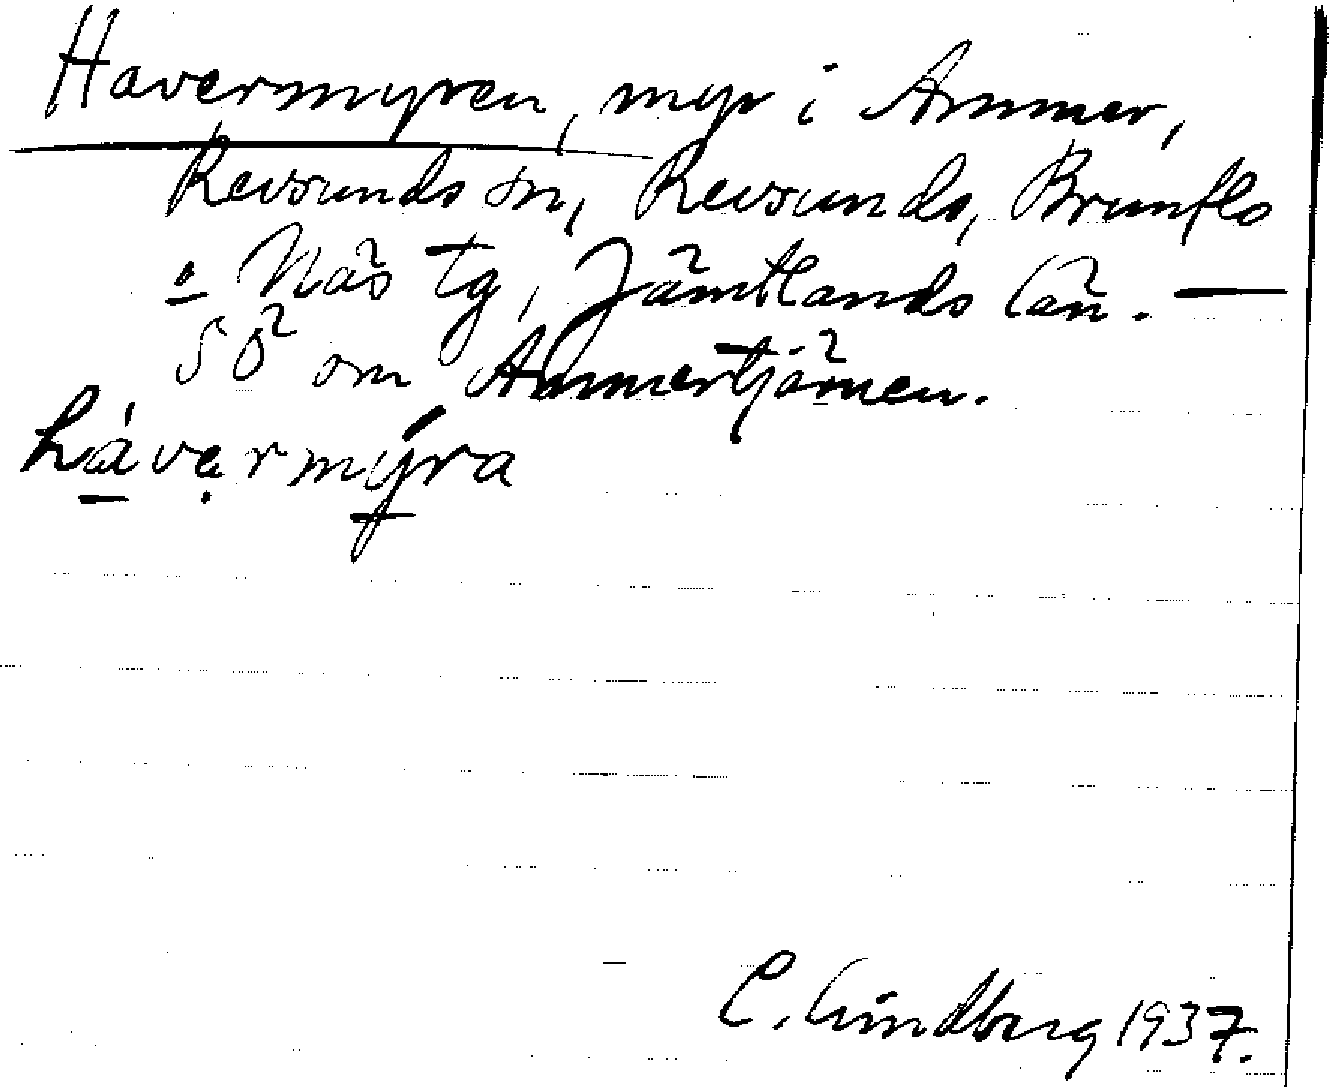 Havermyren, myr i Ammer,
Revsunds sn, Revsunds, Brunflo
o. Näs tg, Jämtlands län. —
SÖ om Ammertjärnen.
hávẹrmýra
C. Lindberg 1937.